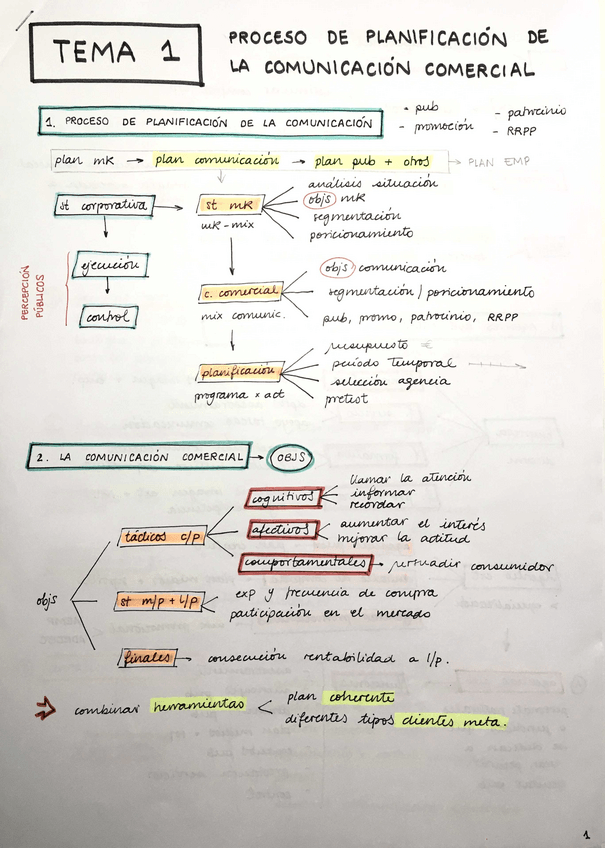 TEMA 1
PROCESO DE PLANIFICACIÓN DE
LA COMUNICACIÓN COMERCIAL
1. PROCESO DE PLANIFICACIÓN DE LA COMUNICACIÓN
- pub
- promoción
- patrocinio
- RRPP
plan mk → plan comunicación → plan pub + otros → PLAN EMP
st corporativa → st mk
mk-mix
análisis situación
objs mk
segmentación
posicionamiento
ejecución
control
PERCEPCIÓN
PÚBLICOS
c. comercial
mix comunic.
objs comunicación
segmentación / posicionamiento
pub, promo, patrocinio, RRPP
planificación
programa x act
presupuesto €
período temporal
selección agencia
pretest
2. LA COMUNICACIÓN COMERCIAL → OBJS
objs
tácticos c/p
cognitivos
llamar la atención
informar
recordar
afectivos
aumentar el interés
mejorar la actitud
comportamentales → persuadir consumidor
st m/p + l/p
exp y frecuencia de compra
participación en el mercado
finales → consecución rentabilidad a l/p.
⇒ combinar herramientas <
plan coherente
diferentes tipos clientes meta.
1